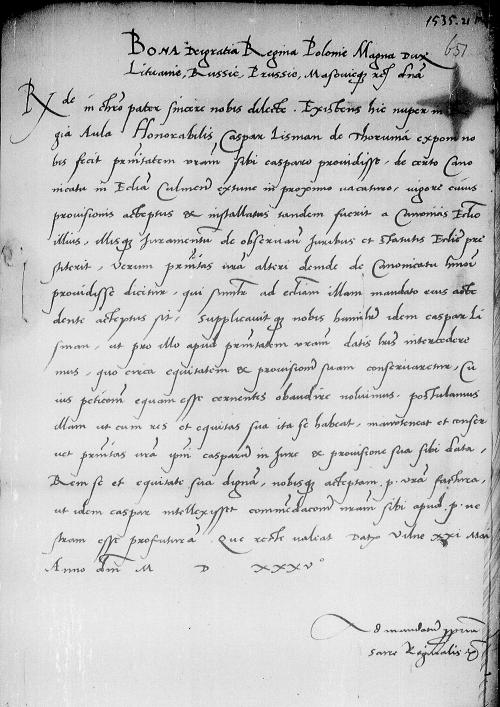 1535. 21
651
Bona Dei gratia Regina Polonie Magna Dux
Lituanie, Russie, Prussie, Masovieq
Rde in chro pater sincere nobis dilecte. Existens hic nuper in
gia Aula Honorabilis Caspar Lisman de Thorunia expon no
bis fecit prnitatem vram sibi casparo providisse, de certo Cano
nicatu in Ecclia Culmen extunc in proximo vacaturo, vigore cuius
provisionis acceptus & installatus tandem fuerit a Canonicis Ecclie
illius, illisq juramentu de observan juribus et statutis Ecclie pre
stiterit, verum prnitas vra alteri deinde de Canonicatu hmoi
providisse dicitur, qui simtr ad eccliam illam mandato eius acce
dente acceptus sit, Supplicavit q nobis humilr idem caspar Li
sman, ut pro illo apud prnitatem vram datis lris intercedere
mus, quo circa equitatem & provisione suam conservaretur, Cu
ius peticom equam esse cernentes obaudire noluimus, postulamus
illam ut cum res et equitas sua ita se habeat, manuteneat et conser
vet prnitas vra ipm casparum in jure & provisione sua sibi data,
Rem se et equitate sua dignam, nobisq acceptam p. vra factura,
ut idem caspar intellexisset commedacom nram sibi apud p. ve
stram esse profuturam. Que recte valeat Datu Vilne xxi Maii
Anno dni M D XXXV°
Ad mandatu ppriu
Sacre Reginalis